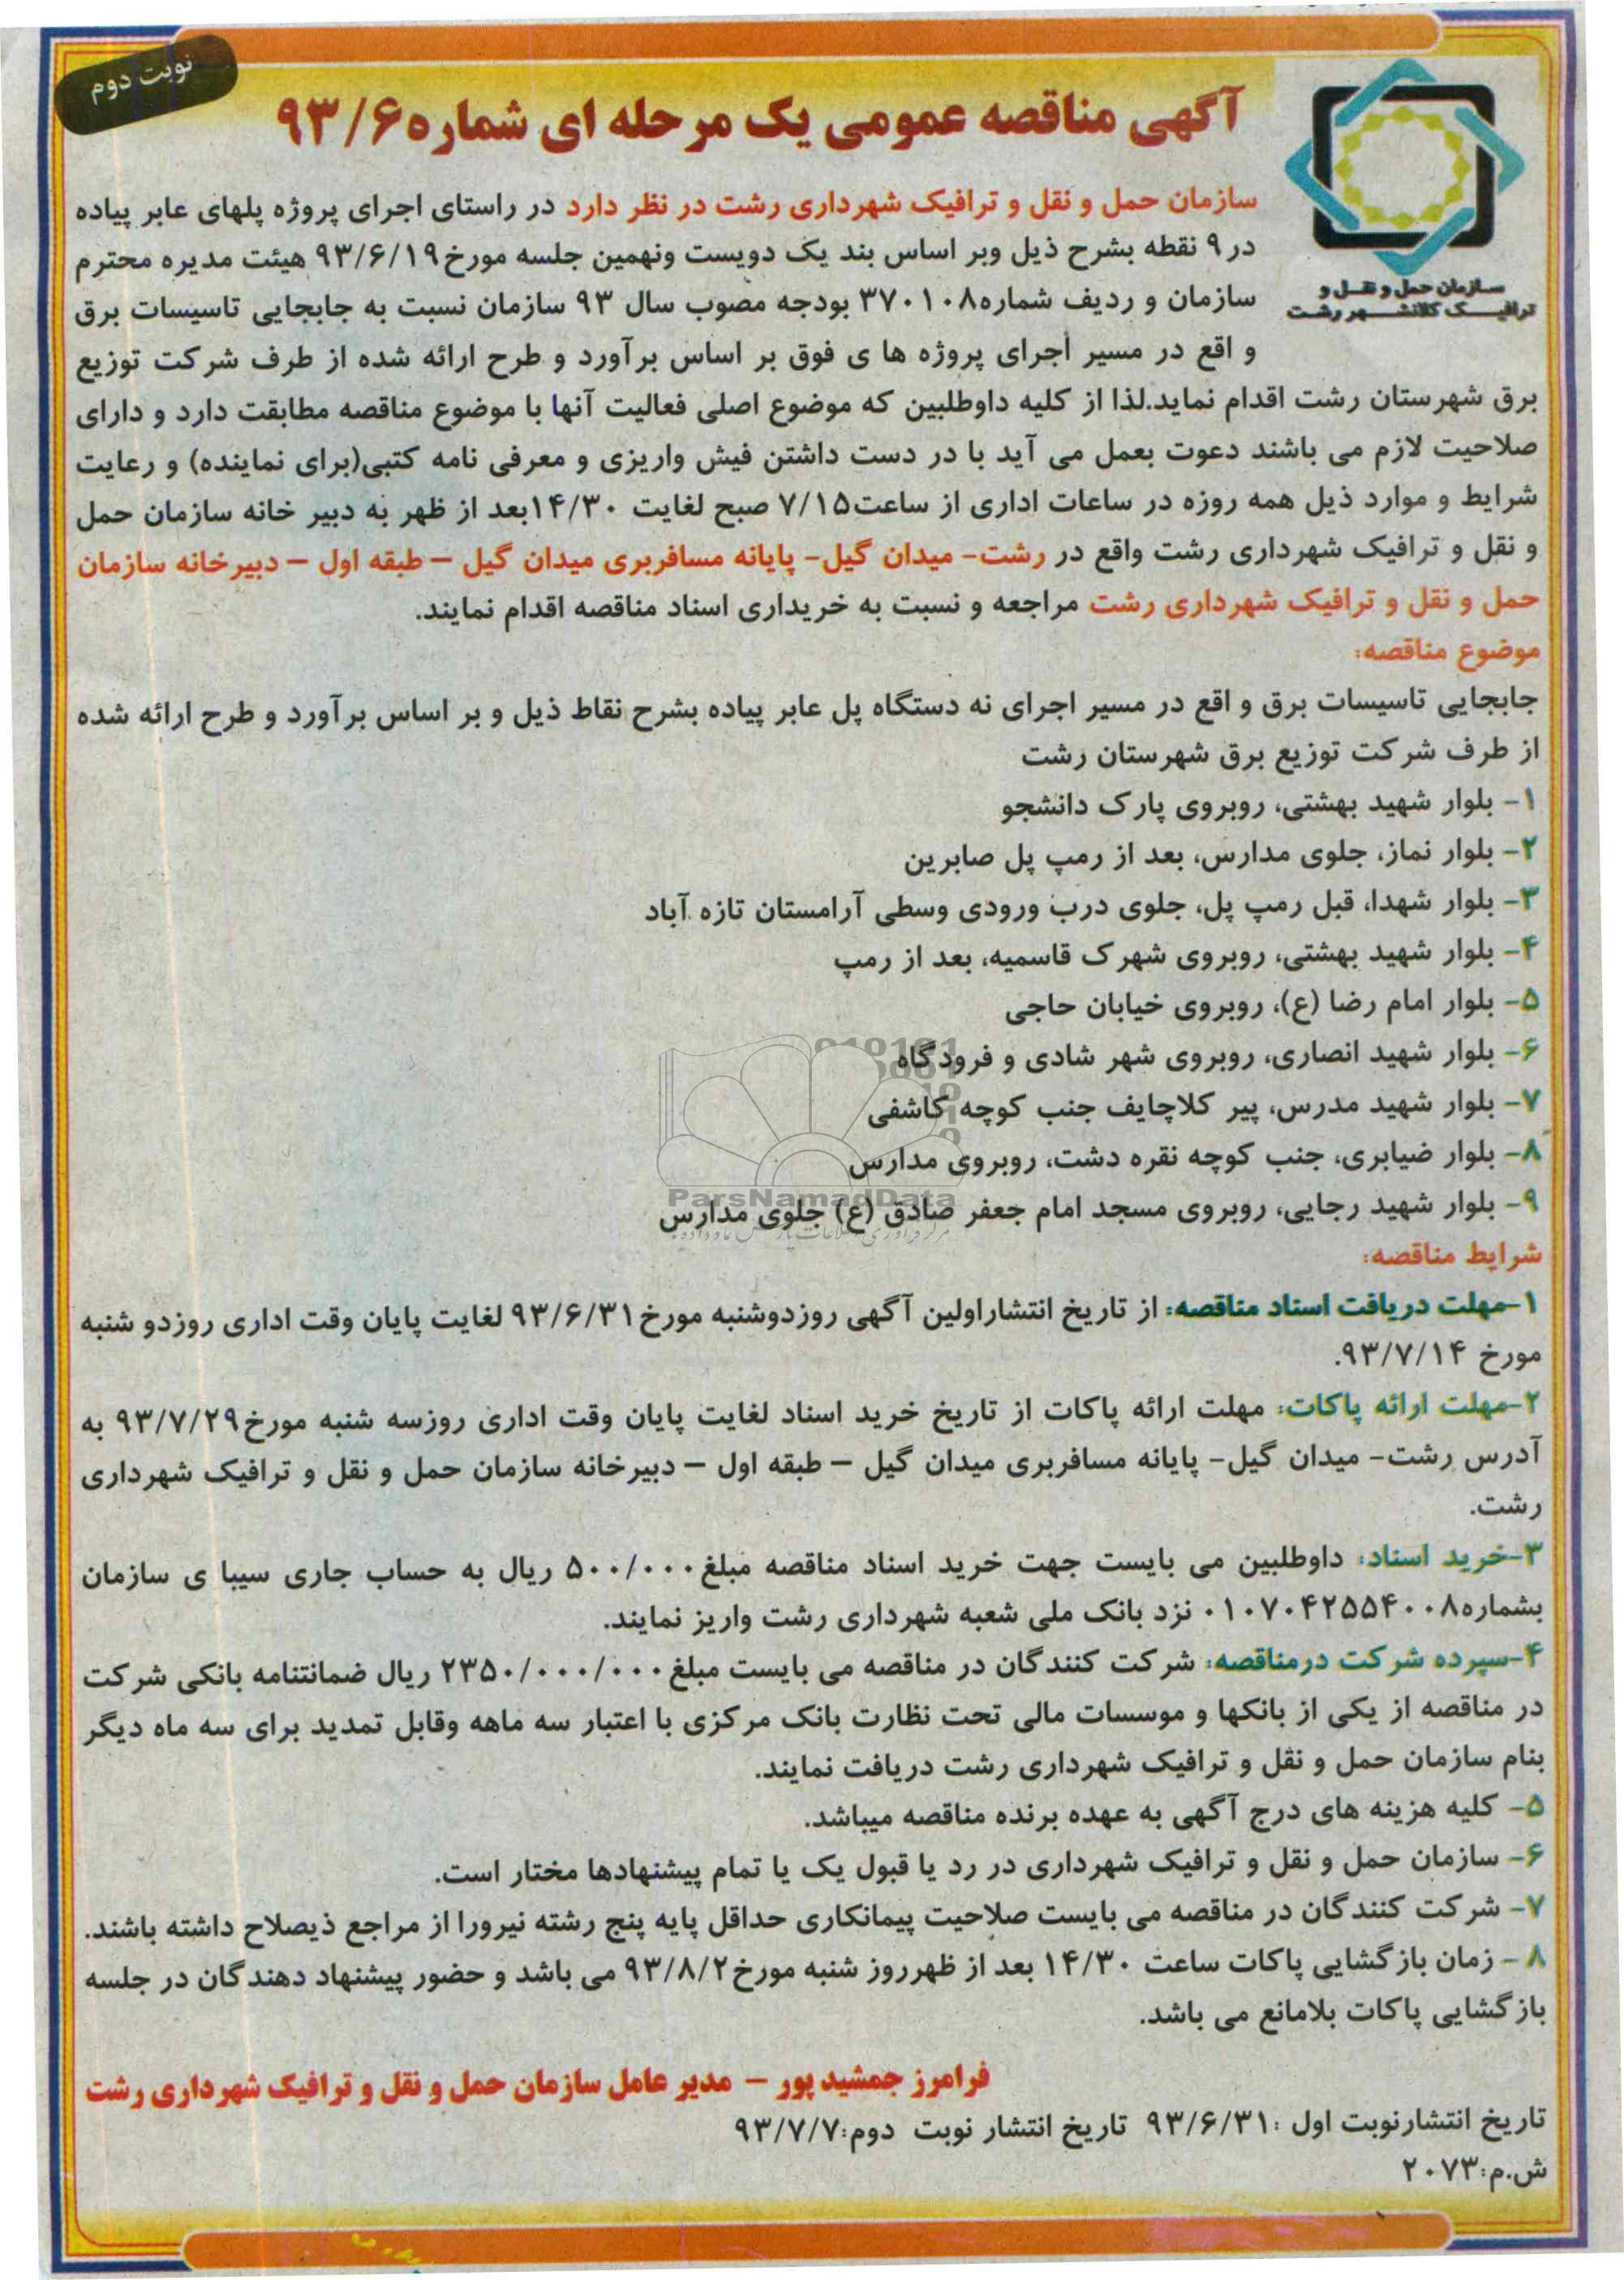 نوبت دوم
آگهی مناقصه عمومی یک مرحله ای شماره ۹۳/۶
سازمان حمل و نقل و
ترافیک کلانشهر رشت
سازمان حمل و نقل و ترافیک شهرداری رشت در نظر دارد در راستای اجرای پروژه پلهای عابر پیاده
در ۹ نقطه بشرح ذیل وبر اساس بند یک دویست ونهمین جلسه مورخ ۹۳/۶/۱۹ هیئت مدیره محترم
سازمان و ردیف شماره ۳۷۰۱۰۸ بودجه مصوب سال ۹۳ سازمان نسبت به جابجایی تاسیسات برق
و اقع در مسیر اجرای پروژه ها ی فوق بر اساس برآورد و طرح ارائه شده از طرف شرکت توزیع
برق شهرستان رشت اقدام نماید.لذا از کلیه داوطلبین که موضوع اصلی فعالیت آنها با موضوع مناقصه مطابقت دارد و دارای
صلاحیت لازم می باشند دعوت بعمل می آید با در دست داشتن فیش واریزی و معرفی نامه کتبی(برای نماینده) و رعایت
شرایط و موارد ذیل همه روزه در ساعات اداری از ساعت ۷/۱۵ صبح لغایت ۱۴/۳۰بعد از ظهر به دبیر خانه سازمان حمل
و نقل و ترافیک شهرداری رشت واقع در رشت- میدان گیل- پایانه مسافربری میدان گیل – طبقه اول – دبیرخانه سازمان
حمل و نقل و ترافیک شهرداری رشت مراجعه و نسبت به خریداری اسناد مناقصه اقدام نمایند.
موضوع مناقصه:
جابجایی تاسیسات برق و اقع در مسیر اجرای نه دستگاه پل عابر پیاده بشرح نقاط ذیل و بر اساس برآورد و طرح ارائه شده
از طرف شرکت توزیع برق شهرستان رشت
۱- بلوار شهید بهشتی، روبروی پارک دانشجو
۲- بلوار نماز، جلوی مدارس، بعد از رمپ پل صابرین
۳- بلوار شهدا، قبل رمپ پل، جلوی درب ورودی وسطی آرامستان تازه آباد
۴- بلوار شهید بهشتی، روبروی شهرک قاسمیه، بعد از رمپ
۵- بلوار امام رضا (ع)، روبروی خیابان حاجی
۶- بلوار شهید انصاری، روبروی شهر شادی و فرودگاه
۷- بلوار شهید مدرس، پیر کلاچایف جنب کوچه کاشفی
۸- بلوار ضیابری، جنب کوچه نقره دشت، روبروی مدارس
ParsNamadData
۹- بلوار شهید رجایی، روبروی مسجد امام جعفر صادق (ع) جلوی مدارس
شرایط مناقصه:
۱-مهلت دریافت اسناد مناقصه: از تاریخ انتشاراولین آگهی روزدوشنبه مورخ ۹۳/۶/۳۱ لغایت پایان وقت اداری روزدو شنبه
مورخ ۹۳/۷/۱۴.
۲-مهلت ارائه پاکات: مهلت ارائه پاکات از تاریخ خرید اسناد لغایت پایان وقت اداری روزسه شنبه مورخ ۹۳/۷/۲۹ به
آدرس رشت- میدان گیل- پایانه مسافربری میدان گیل – طبقه اول – دبیرخانه سازمان حمل و نقل و ترافیک شهرداری
رشت.
۳-خرید اسناد: داوطلبین می بایست جهت خرید اسناد مناقصه مبلغ ۵۰۰/۰۰۰ ریال به حساب جاری سیبا ی سازمان
بشماره ۰۱۰۷۰۴۲۵۵۴۰۰۸ نزد بانک ملی شعبه شهرداری رشت واریز نمایند.
۴-سپرده شرکت درمناقصه: شرکت کنندگان در مناقصه می بایست مبلغ ۲۳۵۰/۰۰۰/۰۰۰ ریال ضمانتنامه بانکی شرکت
در مناقصه از یکی از بانکها و موسسات مالی تحت نظارت بانک مرکزی با اعتبار سه ماهه وقابل تمدید برای سه ماه دیگر
بنام سازمان حمل و نقل و ترافیک شهرداری رشت دریافت نمایند.
۵- کلیه هزینه های درج آگهی به عهده برنده مناقصه میباشد.
۶- سازمان حمل و نقل و ترافیک شهرداری در رد یا قبول یک یا تمام پیشنهادها مختار است.
۷- شرکت کنندگان در مناقصه می بایست صلاحیت پیمانکاری حداقل پایه پنج رشته نیرورا از مراجع ذیصلاح داشته باشند.
۸ - زمان بازگشایی پاکات ساعت ۱۴/۳۰ بعد از ظهرروز شنبه مورخ ۹۳/۸/۲ می باشد و حضور پیشنهاد دهندگان در جلسه
بازگشایی پاکات بلامانع می باشد.
فرامرز جمشید پور – مدیر عامل سازمان حمل و نقل و ترافیک شهرداری رشت
تاریخ انتشارنوبت اول :۹۳/۶/۳۱ تاریخ انتشار نوبت دوم:۹۳/۷/۷
ش.م:۲۰۷۳